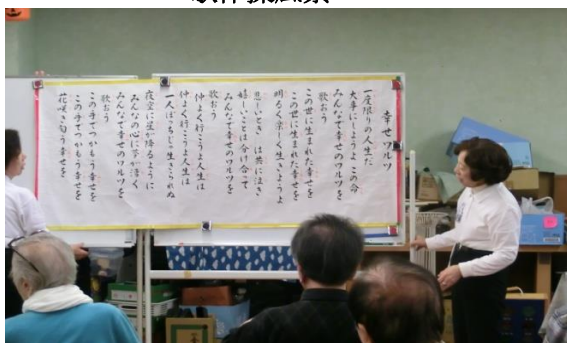 幸せワルツ
一度限りの人生だ
大事にしようよこの命
みんなで幸せのワルツを
歌おう
この世に生まれた幸せを
この世に生まれた幸せを
明るく楽しく生きようよ
悲しいときは共に泣き
嬉しいことは分け合って
みんなで幸せのワルツを
歌おう
仲よく行こうよ人生は
仲よく行こうよ人生は
一人ぼっちじゃ生きられぬ
夜空に星が降るように
みんなの心に夢が湧く
みんなで幸せのワルツを
歌おう
この手でつかもう幸せを
この手でつかもう幸せを
花咲き匂う幸せを